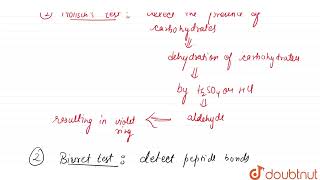 ① Molisch's test : detect the presence of
carbohydrates
dehydration of carbohydrates
by H2SO4 or HCl
resulting in violet ring
aldehyde
② Biuret test : detect peptide bonds
doubtnut